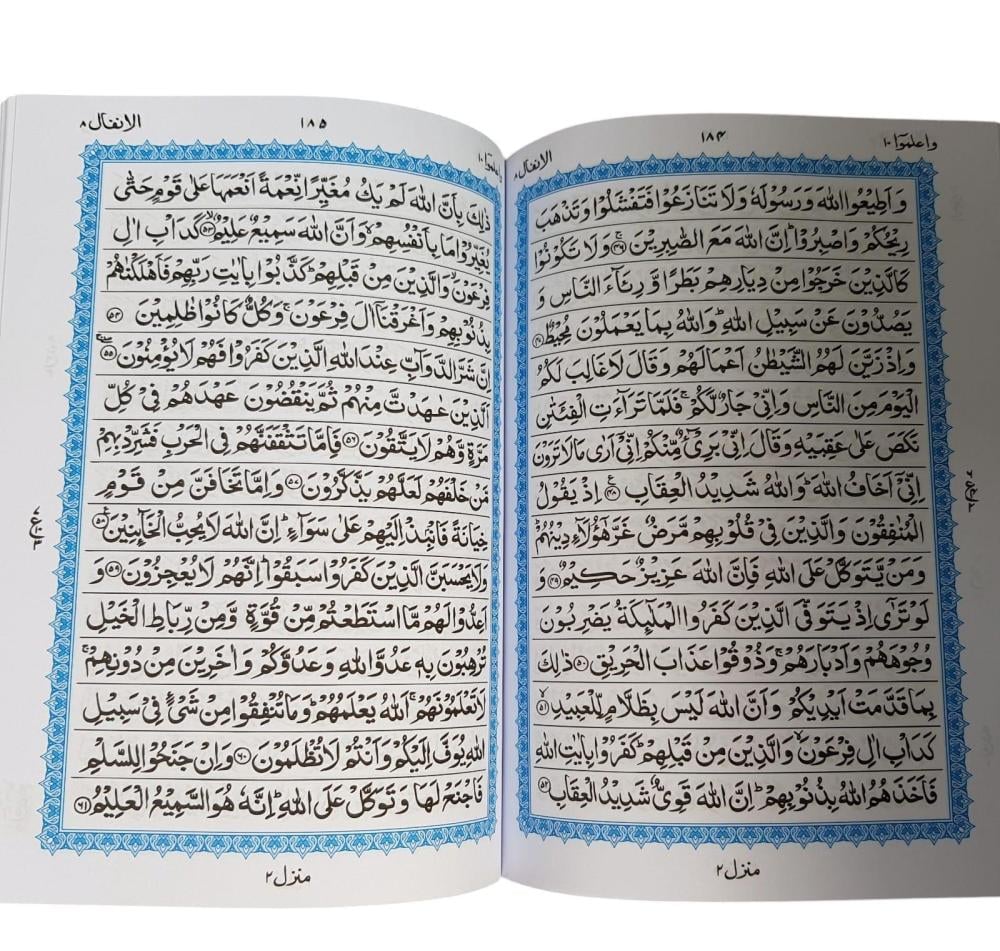 واعلموا ١٠
١٨٤
الانفال ٨
وَاَطِيْعُوا اللّٰهَ وَرَسُوْلَهٗ وَلَا تَنَازَعُوْا فَتَفْشَلُوْا وَتَذْهَبَ
رِيْحُكُمْ وَاصْبِرُوْا ؕ اِنَّ اللّٰهَ مَعَ الصّٰبِرِيْنَ ۚ وَلَا تَكُوْنُوْا
كَالَّذِيْنَ خَرَجُوْا مِنْ دِيَارِهِمْ بَطَرًا وَّرِئَآءَ النَّاسِ وَ
يَصُدُّوْنَ عَنْ سَبِيْلِ اللّٰهِ ؕ وَاللّٰهُ بِمَا يَعْمَلُوْنَ مُحِيْطٌ
وَاِذْ زَيَّنَ لَهُمُ الشَّيْطٰنُ اَعْمَالَهُمْ وَقَالَ لَا غَالِبَ لَكُمُ
الْيَوْمَ مِنَ النَّاسِ وَاِنِّيْ جَارٌ لَّكُمْ ۚ فَلَمَّا تَرَآءَتِ الْفِئَتٰنِ
نَكَصَ عَلٰى عَقِبَيْهِ وَقَالَ اِنِّيْ بَرِيْٓءٌ مِّنْكُمْ اِنِّيْٓ اَرٰى مَا لَا تَرَوْنَ
اِنِّيْٓ اَخَافُ اللّٰهَ ؕ وَاللّٰهُ شَدِيْدُ الْعِقَابِ ۴۸ اِذْ يَقُوْلُ
الْمُنٰفِقُوْنَ وَالَّذِيْنَ فِيْ قُلُوْبِهِمْ مَّرَضٌ غَرَّ هٰٓؤُلَآءِ دِيْنُهُمْ ؕ
وَمَنْ يَّتَوَكَّلْ عَلَى اللّٰهِ فَاِنَّ اللّٰهَ عَزِيْزٌ حَكِيْمٌ ۴۹ وَ
لَوْ تَرٰٓى اِذْ يَتَوَفَّى الَّذِيْنَ كَفَرُوا الْمَلٰٓئِكَةُ يَضْرِبُوْنَ
وُجُوْهَهُمْ وَاَدْبَارَهُمْ ۚ وَذُوْقُوْا عَذَابَ الْحَرِيْقِ ۵۰ ذٰلِكَ
بِمَا قَدَّمَتْ اَيْدِيْكُمْ وَاَنَّ اللّٰهَ لَيْسَ بِظَلَّامٍ لِّلْعَبِيْدِ ۵۱
كَدَاْبِ اٰلِ فِرْعَوْنَ ۙ وَالَّذِيْنَ مِنْ قَبْلِهِمْ ؕ كَفَرُوْا بِاٰيٰتِ اللّٰهِ
فَاَخَذَهُمُ اللّٰهُ بِذُنُوْبِهِمْ ؕ اِنَّ اللّٰهَ قَوِيٌّ شَدِيْدُ الْعِقَابِ ۵۲
منزل ٢
واعلموا ١٠
١٨٥
الانفال ٨
ذٰلِكَ بِاَنَّ اللّٰهَ لَمْ يَكُ مُغَيِّرًا نِّعْمَةً اَنْعَمَهَا عَلٰى قَوْمٍ حَتّٰى
يُغَيِّرُوْا مَا بِاَنْفُسِهِمْ ۙ وَاَنَّ اللّٰهَ سَمِيْعٌ عَلِيْمٌ ۵۳ كَدَاْبِ اٰلِ
فِرْعَوْنَ ۙ وَالَّذِيْنَ مِنْ قَبْلِهِمْ ؕ كَذَّبُوْا بِاٰيٰتِ رَبِّهِمْ فَاَهْلَكْنٰهُمْ
بِذُنُوْبِهِمْ وَاَغْرَقْنَآ اٰلَ فِرْعَوْنَ ۚ وَكُلٌّ كَانُوْا ظٰلِمِيْنَ ۵۴
اِنَّ شَرَّ الدَّوَآبِّ عِنْدَ اللّٰهِ الَّذِيْنَ كَفَرُوْا فَهُمْ لَا يُؤْمِنُوْنَ ۵۵
اَلَّذِيْنَ عٰهَدْتَّ مِنْهُمْ ثُمَّ يَنْقُضُوْنَ عَهْدَهُمْ فِيْ كُلِّ
مَرَّةٍ وَّهُمْ لَا يَتَّقُوْنَ ۵۶ فَاِمَّا تَثْقَفَنَّهُمْ فِي الْحَرْبِ فَشَرِّدْ بِهِمْ
مَّنْ خَلْفَهُمْ لَعَلَّهُمْ يَذَّكَّرُوْنَ ۵۷ وَاِمَّا تَخَافَنَّ مِنْ قَوْمٍ
خِيَانَةً فَانْۢبِذْ اِلَيْهِمْ عَلٰى سَوَآءٍ ؕ اِنَّ اللّٰهَ لَا يُحِبُّ الْخَآئِنِيْنَ ۵۸
وَلَا يَحْسَبَنَّ الَّذِيْنَ كَفَرُوْا سَبَقُوْا ؕ اِنَّهُمْ لَا يُعْجِزُوْنَ ۵۹ وَ
اَعِدُّوْا لَهُمْ مَّا اسْتَطَعْتُمْ مِّنْ قُوَّةٍ وَّمِنْ رِّبَاطِ الْخَيْلِ
تُرْهِبُوْنَ بِهٖ عَدُوَّ اللّٰهِ وَعَدُوَّكُمْ وَاٰخَرِيْنَ مِنْ دُوْنِهِمْ ۚ
لَا تَعْلَمُوْنَهُمْ ۚ اَللّٰهُ يَعْلَمُهُمْ ؕ وَمَا تُنْفِقُوْا مِنْ شَيْءٍ فِيْ سَبِيْلِ
اللّٰهِ يُوَفَّ اِلَيْكُمْ وَاَنْتُمْ لَا تُظْلَمُوْنَ ۶۰ وَاِنْ جَنَحُوْا لِلسَّلْمِ
فَاجْنَحْ لَهَا وَتَوَكَّلْ عَلَى اللّٰهِ ؕ اِنَّهٗ هُوَ السَّمِيْعُ الْعَلِيْمُ ۶۱
منزل ٢